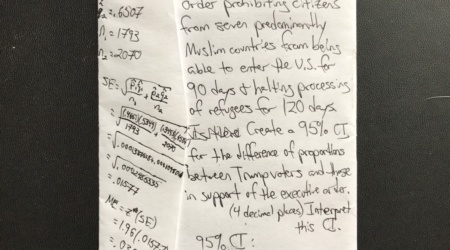 = .6507
n₁ = 1793
n₂ = 2070
SE = √(p̂₁q̂₁/n₁ + p̂₂q̂₂/n₂)
1793 2070
= .01577
ME = z*(SE)
= 1.96(.01577)
Order prohibiting citizens
from seven predominantly
Muslim countries from being
able to enter the U.S. for
90 days & halting processing
of refugees for 120 days.
Create a 95% CI
for the difference of proportions
between Trump voters and those
in support of the executive order.
(4 decimal places) Interpret
this CI.
95% CI: